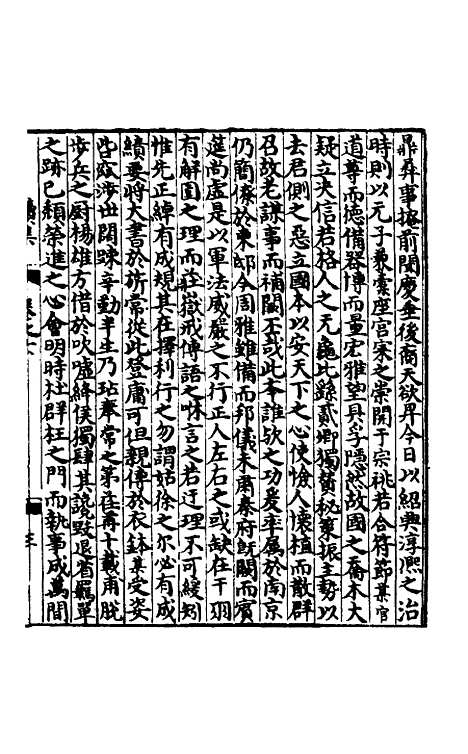 鼎彞事掩前聞慶垂後裔天欲畀今日以紹興淳熙之治
時則以元子兼槖座宫寀之崇開于宗祧若合符節某官
道尊而德備器博而量宏雅望具孚隱然故國之喬木大
疑立决信若格人之元龜比繇貳卿獨贊秘策振主勢以
去君側之惡立國本以安天下之心使憸人懷植而散群
召故老謀事而補闕丕或此本誰欤之功爰率属於南京
仍簡僚於東邸今周雅雖備而邦儀未肅秦府旣闢而賓
筵尚虚是以軍法威嚴之不行正人左右之或缺在干羽
有解圍之理而莊嶽戒傅語之咻言之若迂理不可緩矧
惟先正綽有成規其在擇利行之勿謂姑徐之尔必有成
績要將大書於旂常從此登庸可但親傳於衣鉢某受姿
呰窳涉世闊踈辛勤半生乃玷奉常之第荏苒十載甫脫
步兵之厨楊雄方借於吹嘘絳侯獨肆其詭毀退省羈單
之跡已頽榮進之心會明時杜群枉之門而執事成萬間